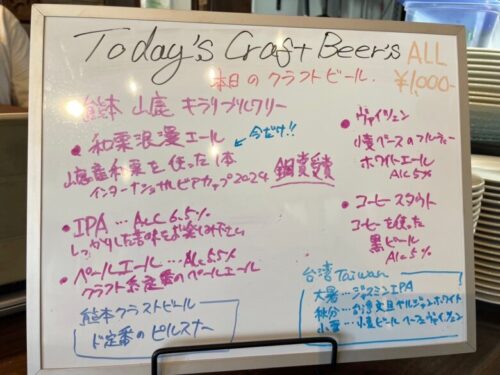 Today's Craft Beer's ALL
¥1,000-
本日のクラフトビール.
熊本 山鹿 キラリブルワリー
• 和栗浪漫エール
← 今だけ!!
山鹿産和栗を使った1本
インターナショナルビアカップ2024 銅賞受賞
• IPA … ALC 6.5%
しっかりした苦味をお楽しみ下さい
• ペールエール … ALC 5.5%
クラフト系定番のペールエール
熊本クラフトビール
ド定番のピルスナー
• ヴァイツェン
小麦ベースのフルーティー
ホワイトエール
ALC 5%
• コーヒースタウト
コーヒーを使った
黒ビール
ALC 5%
台湾 Taiwan
大暑 … ジャスミンIPA
秋分 … 台湾ベルジャンホワイト
小麦ビール ヴァイツェン